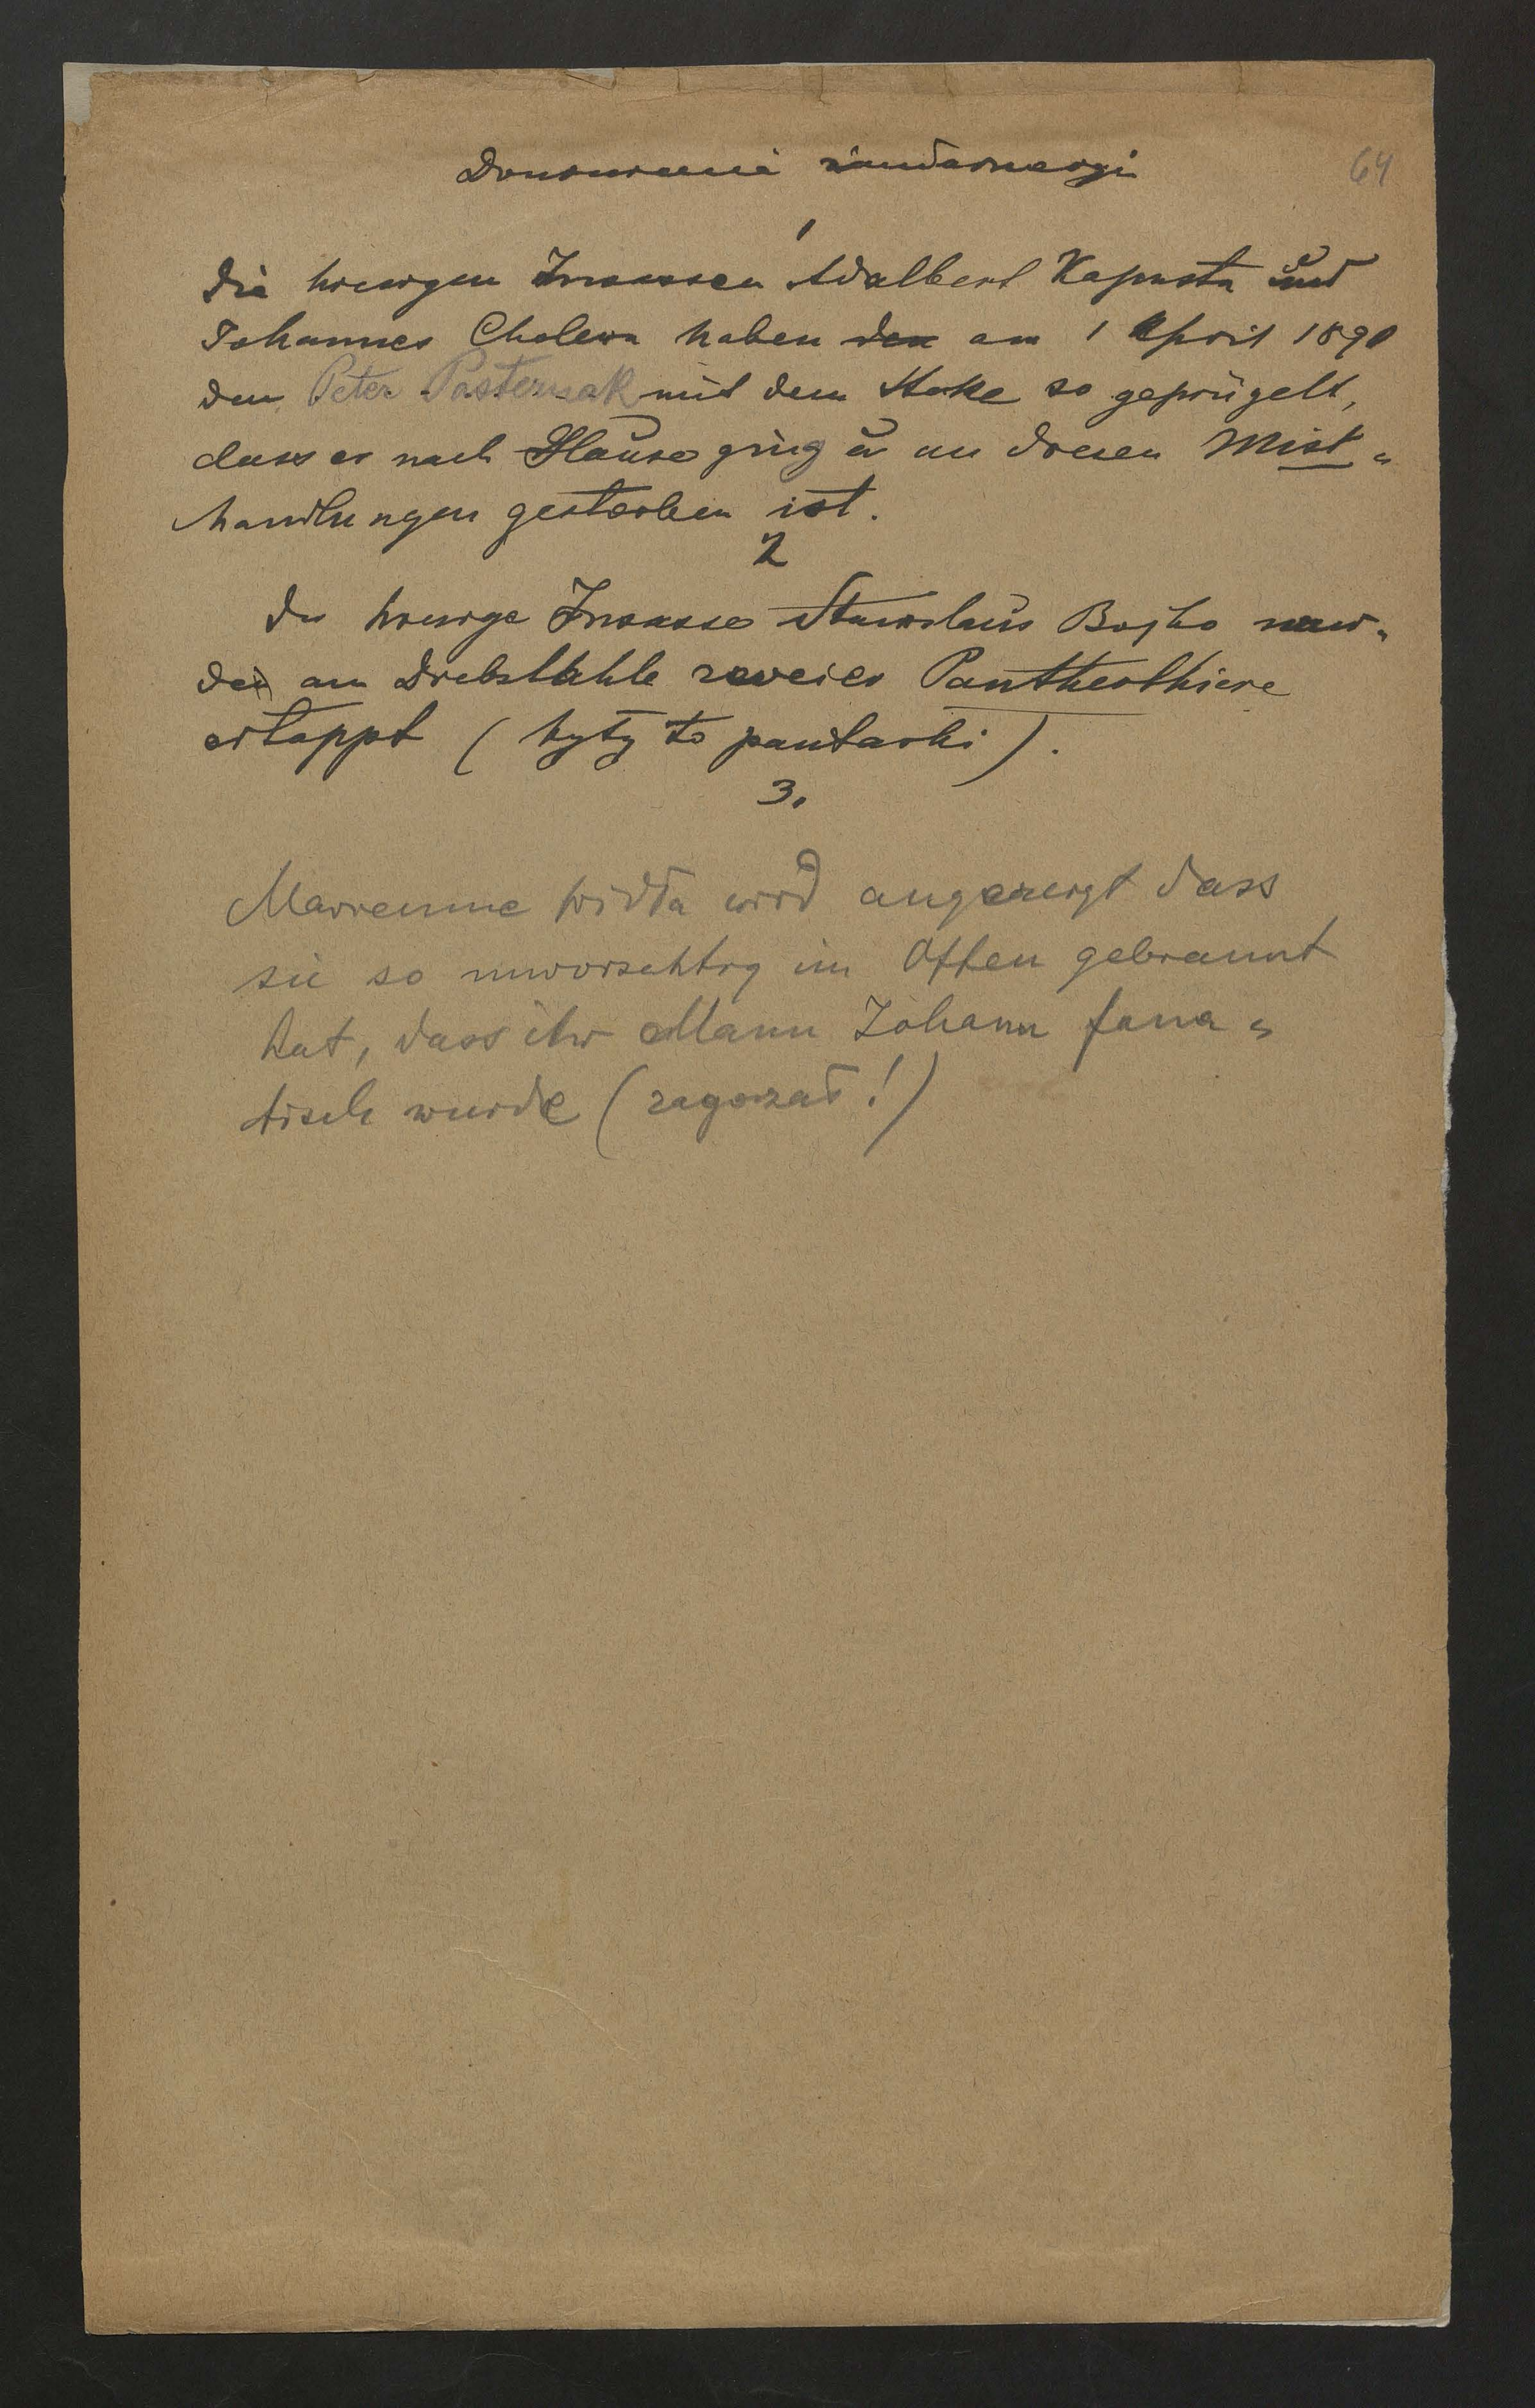 Doniesienia żandarmeryi
64
1
Die hiesigen Insassen Adalbert Kapusta und
Johannes Cholewa haben den am 1 April 1890
den Peter Pasternak mit dem Stoke so geprügelt,
dass er nach Hause ging u an diesen Mist=
handlungen gestorben ist.
2
Der hiesige Insasse Stanislaus Bojko wur=
de am Diebstahle zweier Pantherthiere
ertappt (były to pantarki).
3.
Marianne wird angezeigt dass
sie so unvorsichtig im Offen gebrannt
hat, dass ihr Mann Johann fana=
tisch wurde (zagorzał!)